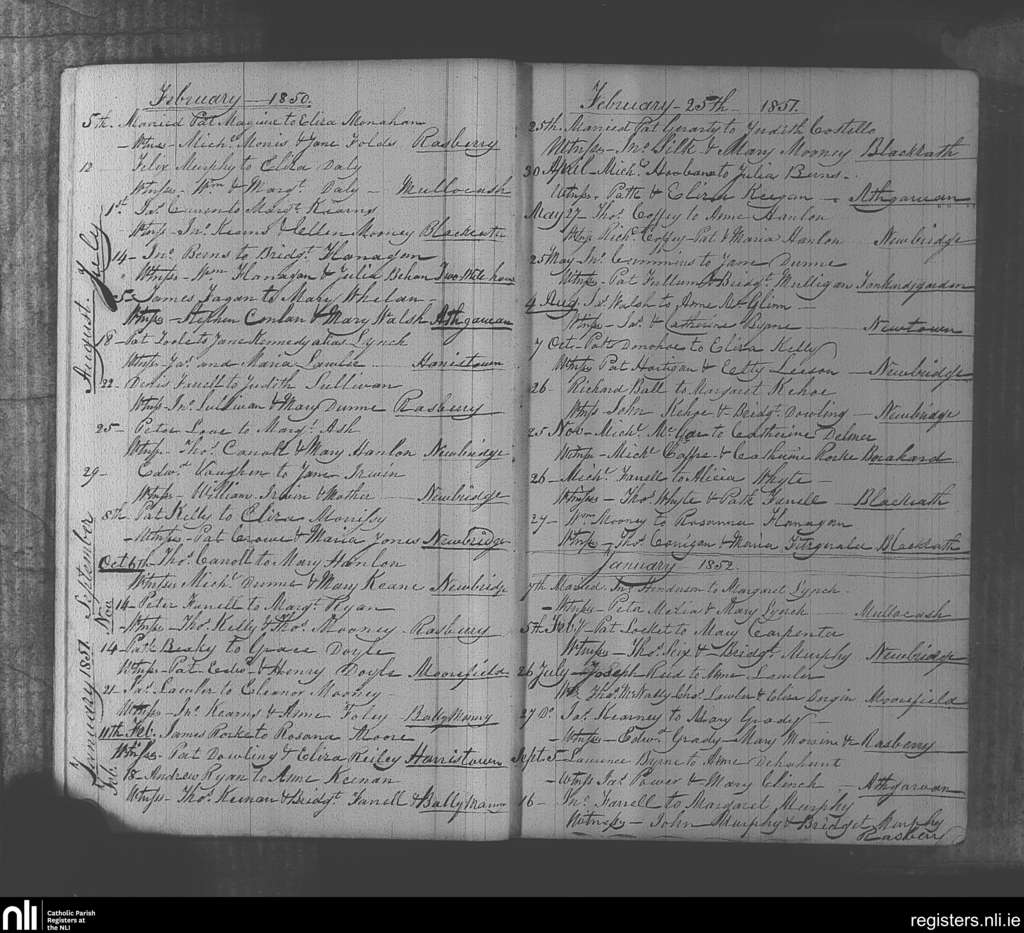 February 1850.
5th Married Pat Maguire to Eliza Monahan
Witness Michl Morris & Jane Folds Rasberry
12 Felix Murphy to Eliza Daly
Witness Wm & Margt. Daly Mullocash
July
1st Jas. to Margt. Kearns
Witness Jno. Kearns & Ellen Mooney
14 Jno. Berns to Bridgt. Flanagan
Witness Wm Flanagan & Julia Behan Two Mile house
August
5 James Fagan to Mary Whelan
Witness Stephen Conlan & Mary Walsh Athgarvan
18 Pat Toole to Jane Kennedy alias Lynch
Witness Jas. and Maria Lawler Harristown
22 Denis Farrell to Judith Sullivan
Witness Jno. Sullivan & Mary Dunne Rasberry
25 Peter Love to Margt. Ash
Witness Thos. Carroll & Mary Hanlon Newbridge
29 Edwd. Vaughan to Jane Irwin
Witness William Irwin & Mother Newbridge
September
8th Pat Kelly to Eliza Morrissy
Witness Pat Crowe & Maria Jones Newbridge
Oct 6th Thos. Carroll to Mary Hanlon
Witness Michl. Dunne & Mary Keane Newbridge
Nov 14 Peter Farrell to Margt. Ryan
Witness Thos. Kelly & Thos. Mooney Rasberry
January 1851
14 Patk to Grace Doyle
Witness Pat Edwd. & Henry Doyle Moorefield
21 Jas. Lawler to Eleanor Mooney
Witness Jno. Kearns & Anne Foley Ballymany
Feb
11th Feb. James Rorke to Rosana Moore
Witness Pat Dowling & Eliza Reiley Harristown
18 Andrew Ryan to Anne Keenan
Witness Thos. Keenan & Bridgt. Farrell & Ballymany
February 25th 1851.
25th Married Pat Gerarty to Judith Costello
Witness Jno. Silk & Mary Mooney Blackrath
30 April Michl. to Julia Berns
Witness Patk & Eliza Keegan Athgarvan
May 27 Thos. Coffey to Anne Hanlon
Witness Richd. Coffey Pat & Maria Hanlon Newbridge
25 May Jno. Cummins to Jane Dunne
Witness Pat Fullum & Bridgt. Mulligan Tankardsgarden
4 Aug. Jas Walsh to Anne McGlinn
Witness Jas. & Catherine Byrne Newtown
7 Oct Patk Donohoe to Eliza Kelly
Witness Pat Hartigan & Leeson Newbridge
26 Richard Ball to Margaret Kehoe
Witness John Kehoe & Bridgt. Dowling Newbridge
25 Nov Michl. to Catherine Delmer
Witness Michl. & Catherine Rorke
26 Michl. Farrell to Alicia Whyte
Witness Thos. Whyte & Patk Farrell Blackrath
27 Wm Mooney to Rosanna Flanagan
Witness Thos. Corrigan & Maria Fitzgerald Blackrath
January 1852
7th Married Jno. Henderson to Margaret Lynch
Witness Peter & Mary Lynch Mullacash
5th Feby Pat Locket to Mary Carpenter
Witness Thos. & Bridgt. Murphy Newbridge
26 July Joseph Reid to Anne Lawler
Wit. Thos. McNally Chrs. Lawler & Eliza Moorefield
27 Do. Jas. Kearney to Mary Grady
Witness Edwd. Grady Mary & Rasberry
Sept 5 Laurence Byrne to Anne Delahunt
Witness Jas. Power & Mary Clinch Athgarvan
16 Jno. Farrell to Margaret Murphy
Witness John Murphy & Bridget Murphy
Rasberry
nli Catholic Parish
Registers at
the NLI
registers.nli.ie